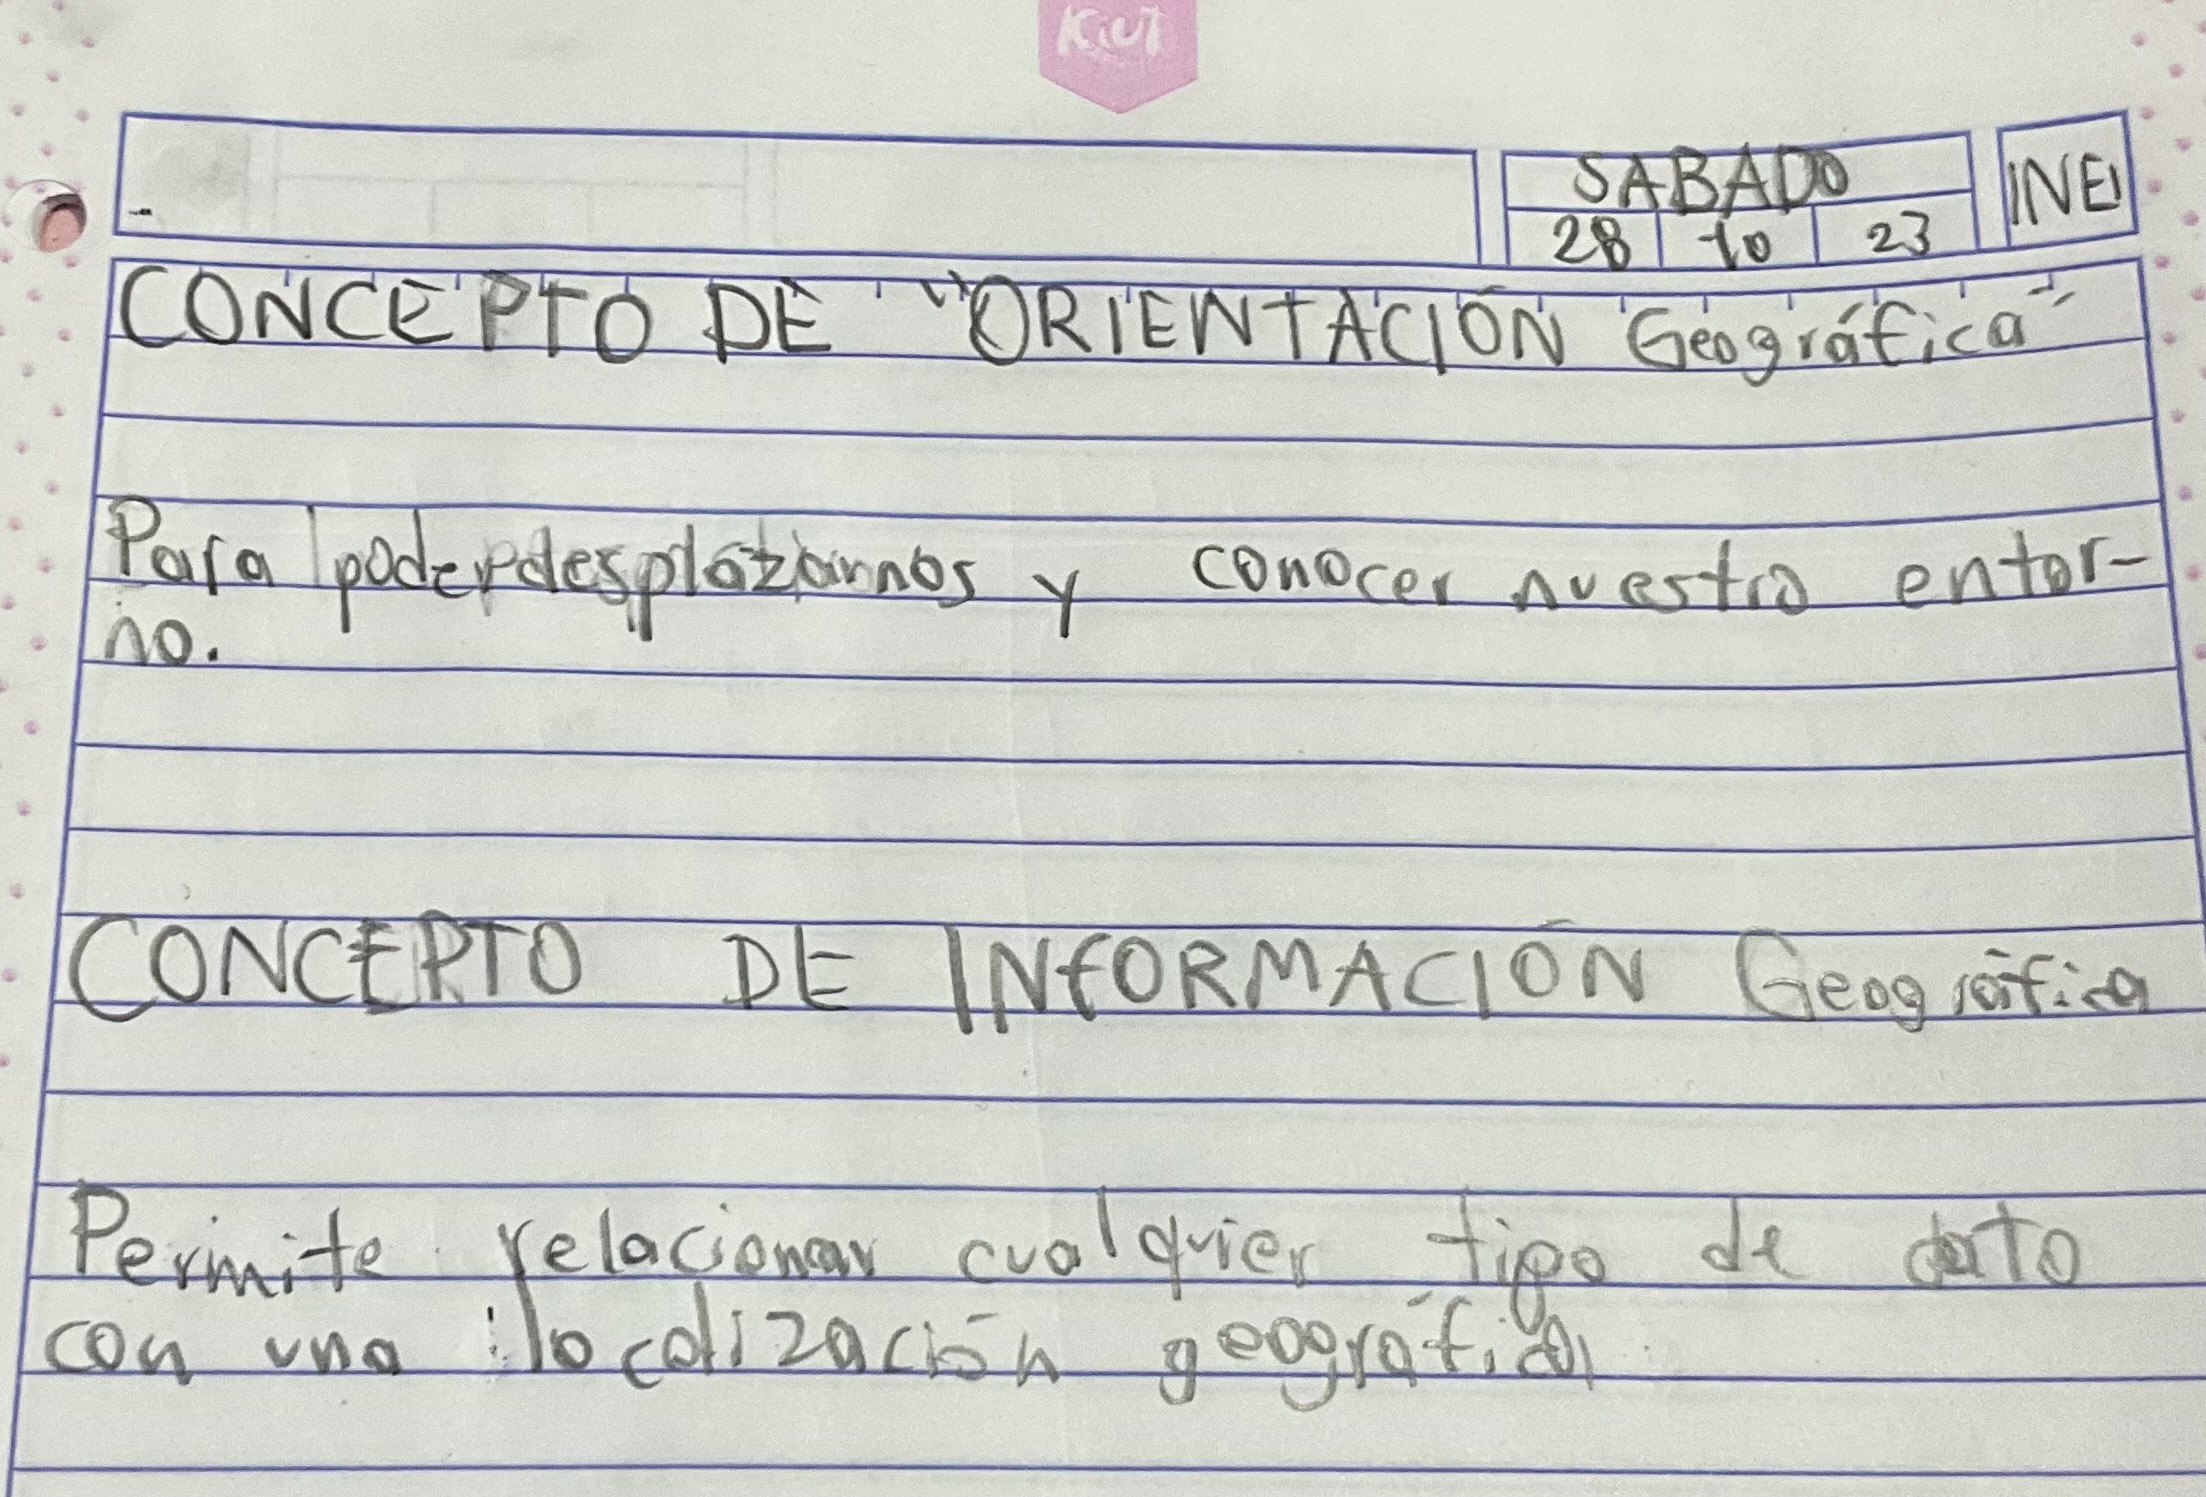 Kiut
SABADO
28 10 23
INEI
CONCEPTO DE "ORIENTACIÓN Geográfica"
Para poder desplazarnos y conocer nuestro entor-
no.
CONCEPTO DE INFORMACIÓN Geográfica
Permite relacionar cualquier tipo de dato
con una localización geográfica